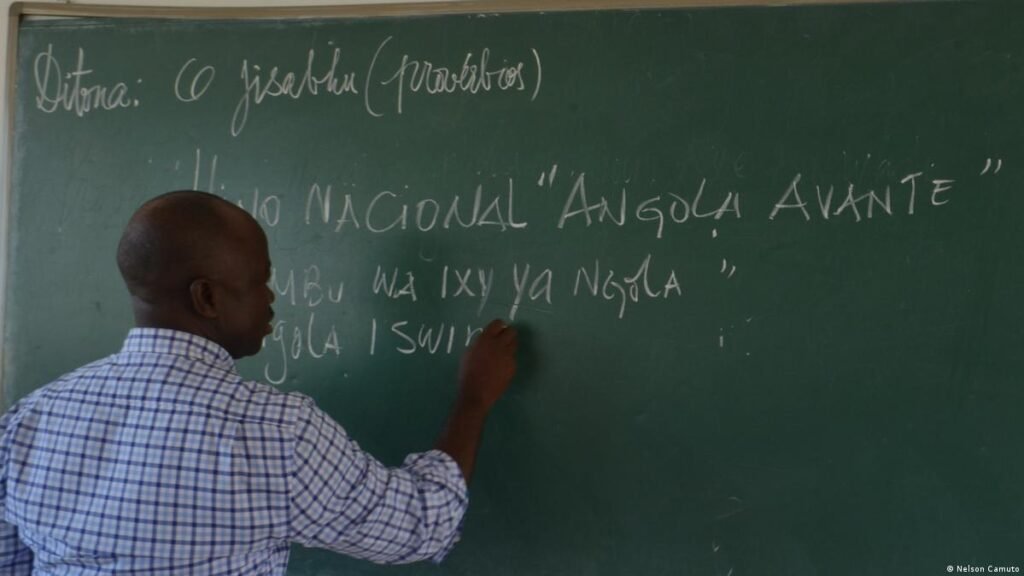 Ditona: 6 jisabhu (provérbios)
"Hino NACIONAL "ANGOLA AVANTE"
WA IXY YA NgOLA "
ISWI
© Nelson Camuto